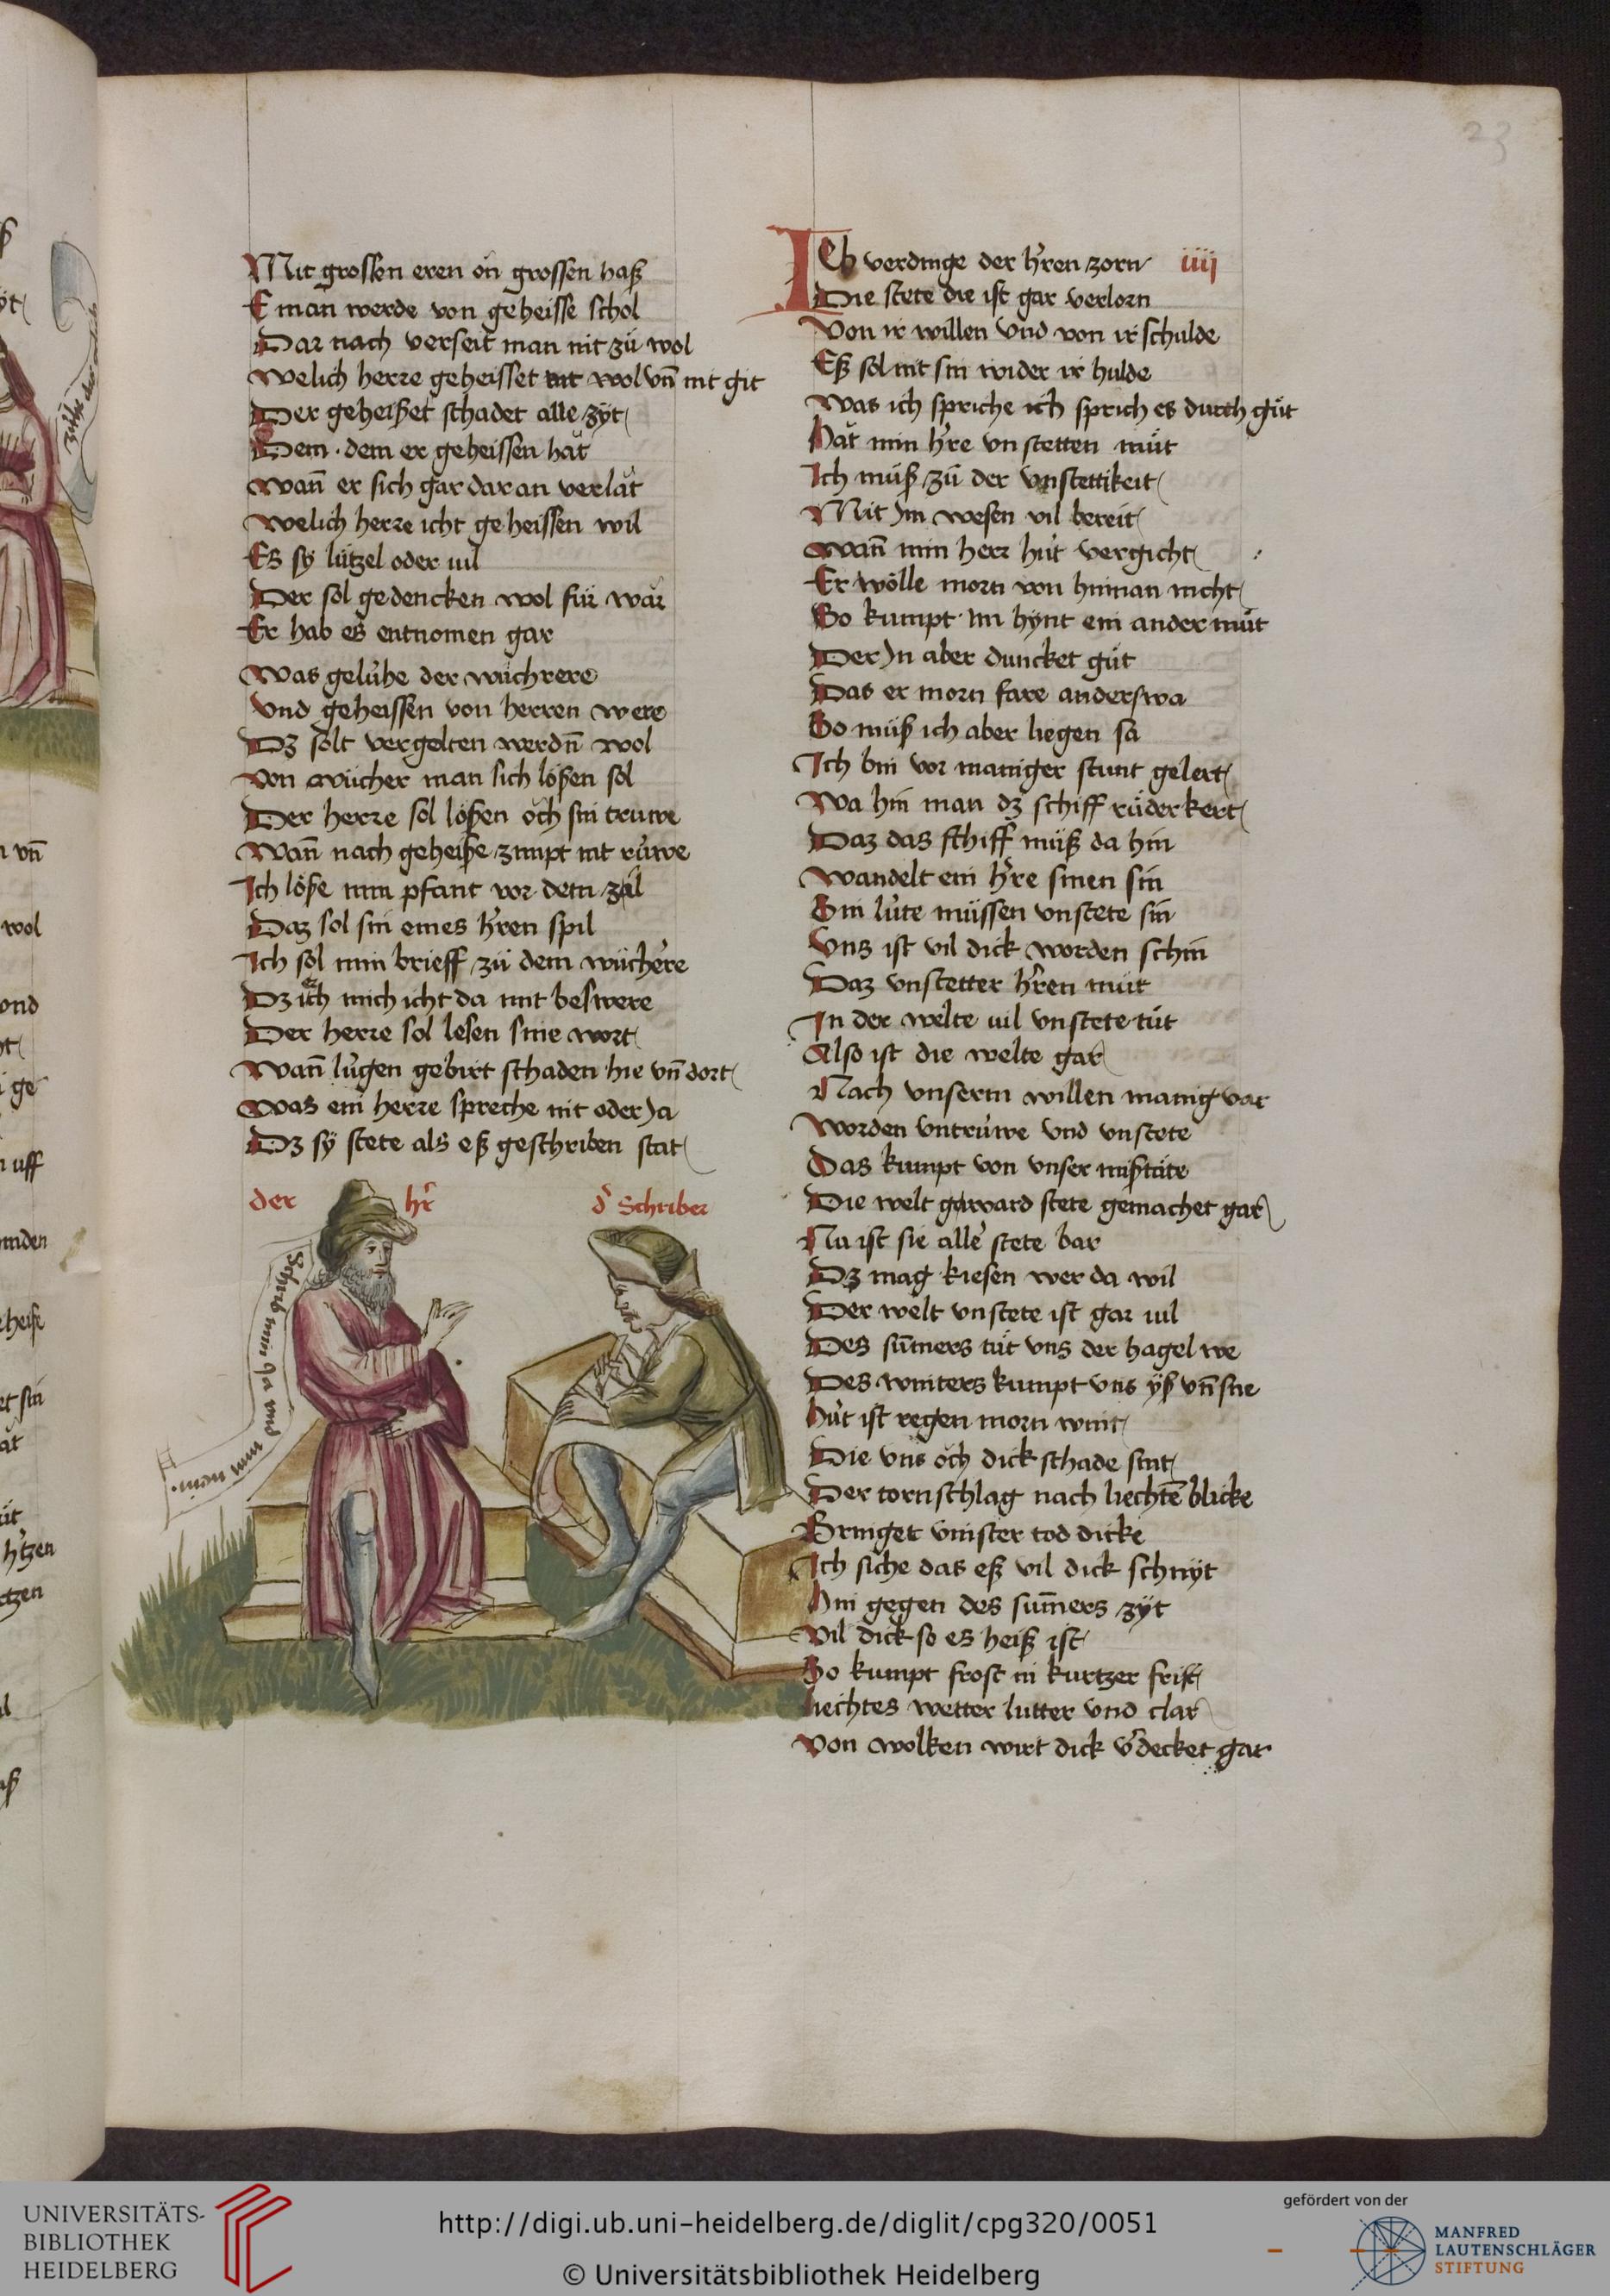 23
Mit grossen eren on grossen haß
E man werde von geheisse schol
Dar nach verseit man nit zů wol
Welich herre geheisset nit wol vn̄ nit git
Der geheißet schadet alle zyt
Dem · dem er geheissen hǎt
Wann̄ er sich gar dar an verlǎt
Welich herre icht geheissen wil
Es sy lützel oder uil
Der sol gedencken wol für wǎr
Er hab es entnomen gar
Was gelühe der wůchrere
Vnd geheissen von herren were
Dz sölt vergelten werdn̄ wol
Von wůcher man sich lößen sol
Der herre sol lößen ǒch sin truwe
Wann̄ nach geheiße zimpt nit růwe
Ich löße min pfant vor dem zil
Daz sol sin eines h'ren spil
Ich sol min brieff zů dem wůch'ere
Dz er ich mich icht da mit beswere
Der herre sol lesen sine wort
Wann̄ lügen gebirt schaden hie vn̄ dort
Was ein herre spreche nit oder Ja
Dz sÿ stete als eß geschriben stat
der h'r
d' Schriber
Schrib min ga vnd
min nain
ICh verdinge der h'ren zorn iiij
Die stete die ist gar verlorn
Von ir willen vnd von ir schulde
Eß sol nit sin wider ir hulde
Was ich spriche ich sprich es durch gůt
Hǎt min h're vnstetten můt
Ich můß zů der vnstettikeit
Mit Jm wesen vil bereit
Wann̄ min herr hüt vergicht
Er wölle morn von hinnan nicht
So kumpt im hynt ein ander můt
Der Jn aber duncket gůt
Das er morn fare anderswa
So můß ich aber liegen sa
Ich bin vor maniger stunt gelert
Wa hin man dz schiff růder kert
Daz das schiff můß da hin
Wandelt ein h're sinen sin
Sin lüte müssen vnstete sin
Vns ist vil dick worden schin
Daz vnstetter h'ren můt
In der welte uil vnstete tůt
Also ist die welte gar
Nach vnserm willen manig var
Worden vntrüwe vnd vnstete
Das kumpt von vnser mißtäte
Die welt gar ward stete gemachet gar
Nu ist sie alle' stete bar
Dz mag kiesen wer da wil
Der welt vnstete ist gar uil
Des sum̄ers tůt vns der hagel we
Des winters kumpt vns ÿß vn̄ sne
Hüt ist regen morn wint
Die vns ǒch dick schade sint
Der tornschlag nach liechtē blicke
Bringet vinster tod dicke
Ich siche das eß vil dick schnÿt
Hin gegen des sum̄ers zÿt
Vil dick so es heiß ist
So kumpt frost in kurtzer frist
Liechtes wetter lutter vnd clar
Von wolken wirt dick v'decket gar
UNIVERSITÄTS-
BIBLIOTHEK
HEIDELBERG
http://digi.ub.uni-heidelberg.de/diglit/cpg320/0051
© Universitätsbibliothek Heidelberg
gefördert von der
MANFRED
LAUTENSCHLÄGER
STIFTUNG